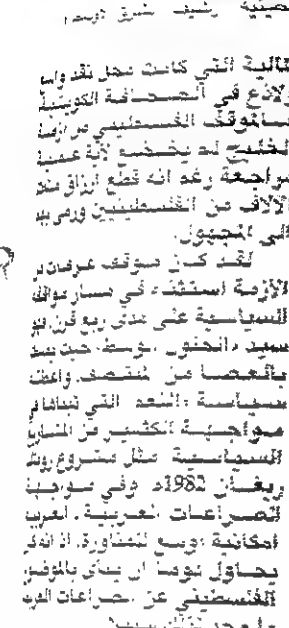 التي كانت محل نقد واسع
ولاذع في الصحافة الكويتية
الموقف الفلسطيني من ازمة
الخليج لم يخضع لأية عملية
مراجعة رغم انه قطع ارزاق مئات
الآلاف من الفلسطينيين ورمى بهم
الى المجهول.
لقد كان موقف عرفات من
الازمة استثناء في مسار مواقفه
السياسية على مدى ربع قرن، فهو
سيد «الحلول الوسط» حيث يمسك
بالعصا من المنتصف، واعطت
سياسة «النعم» التي تبناها في
مواجهة الكثير من المشاريع
السياسية مثل مشروع رونالد
ريغان 1982م وفي مواجهة
الصراعات العربية ـ العربية
امكانية اوسع للمناورة، اذ انه كان
يحاول دوما ان ينأى بالموقف
الفلسطيني عن الصراعات العربية